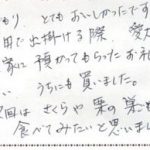 もり、とてもおいしかったです
用で出掛ける際、愛
家に預かってもらったお礼
うちにも買いました。
回は さくらや 栗の
食べてみたいと思いま